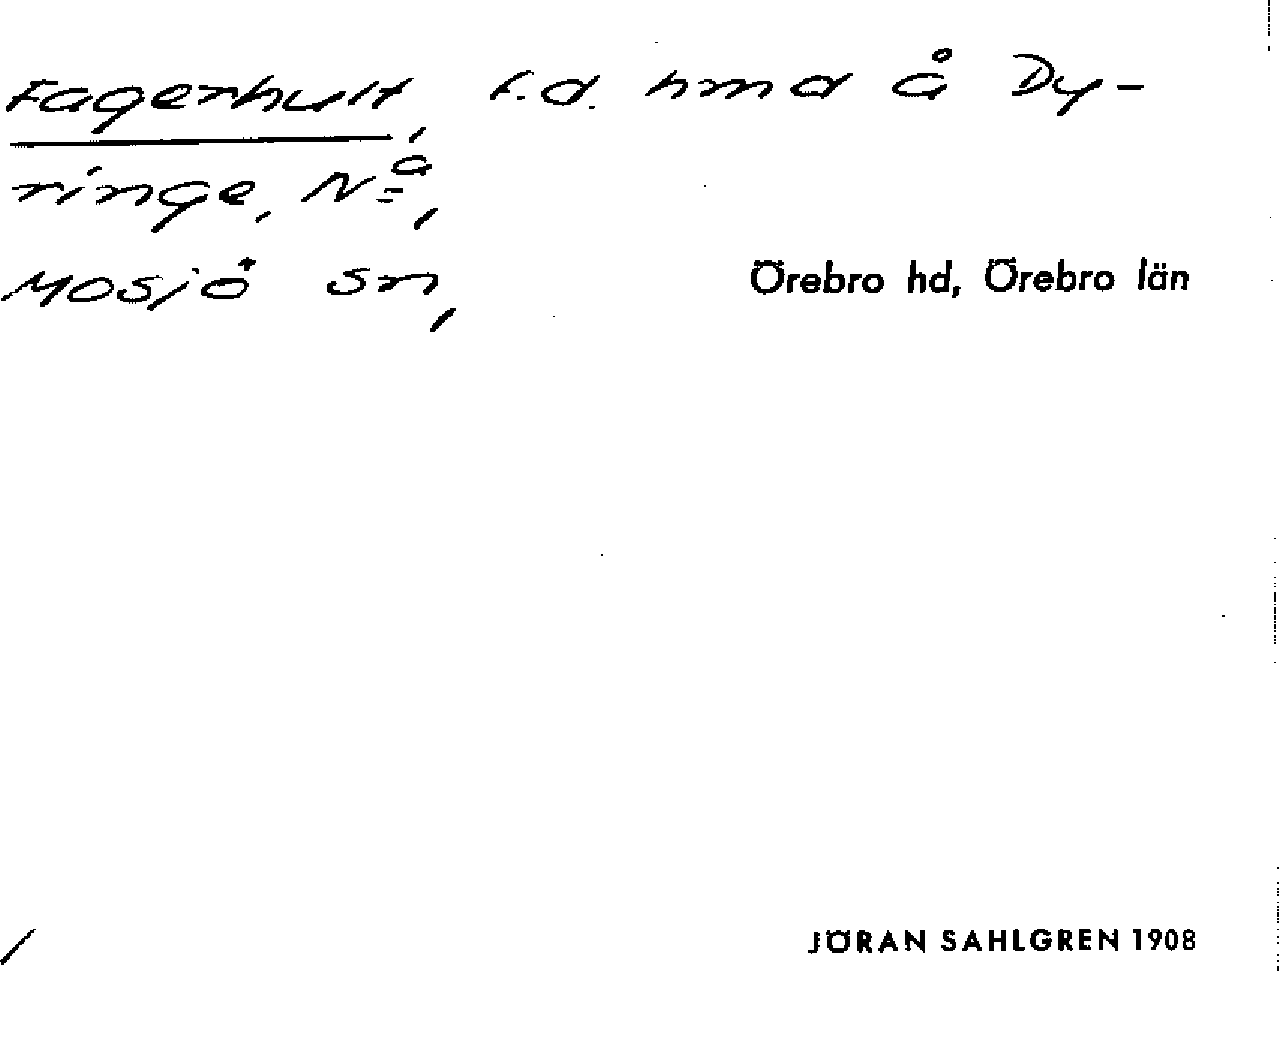 Fagerhult, f.d. hmd å Dy-
ringe, Nᵃ,
Mosjö sn,
Örebro hd, Örebro län
JÖRAN SAHLGREN 1908